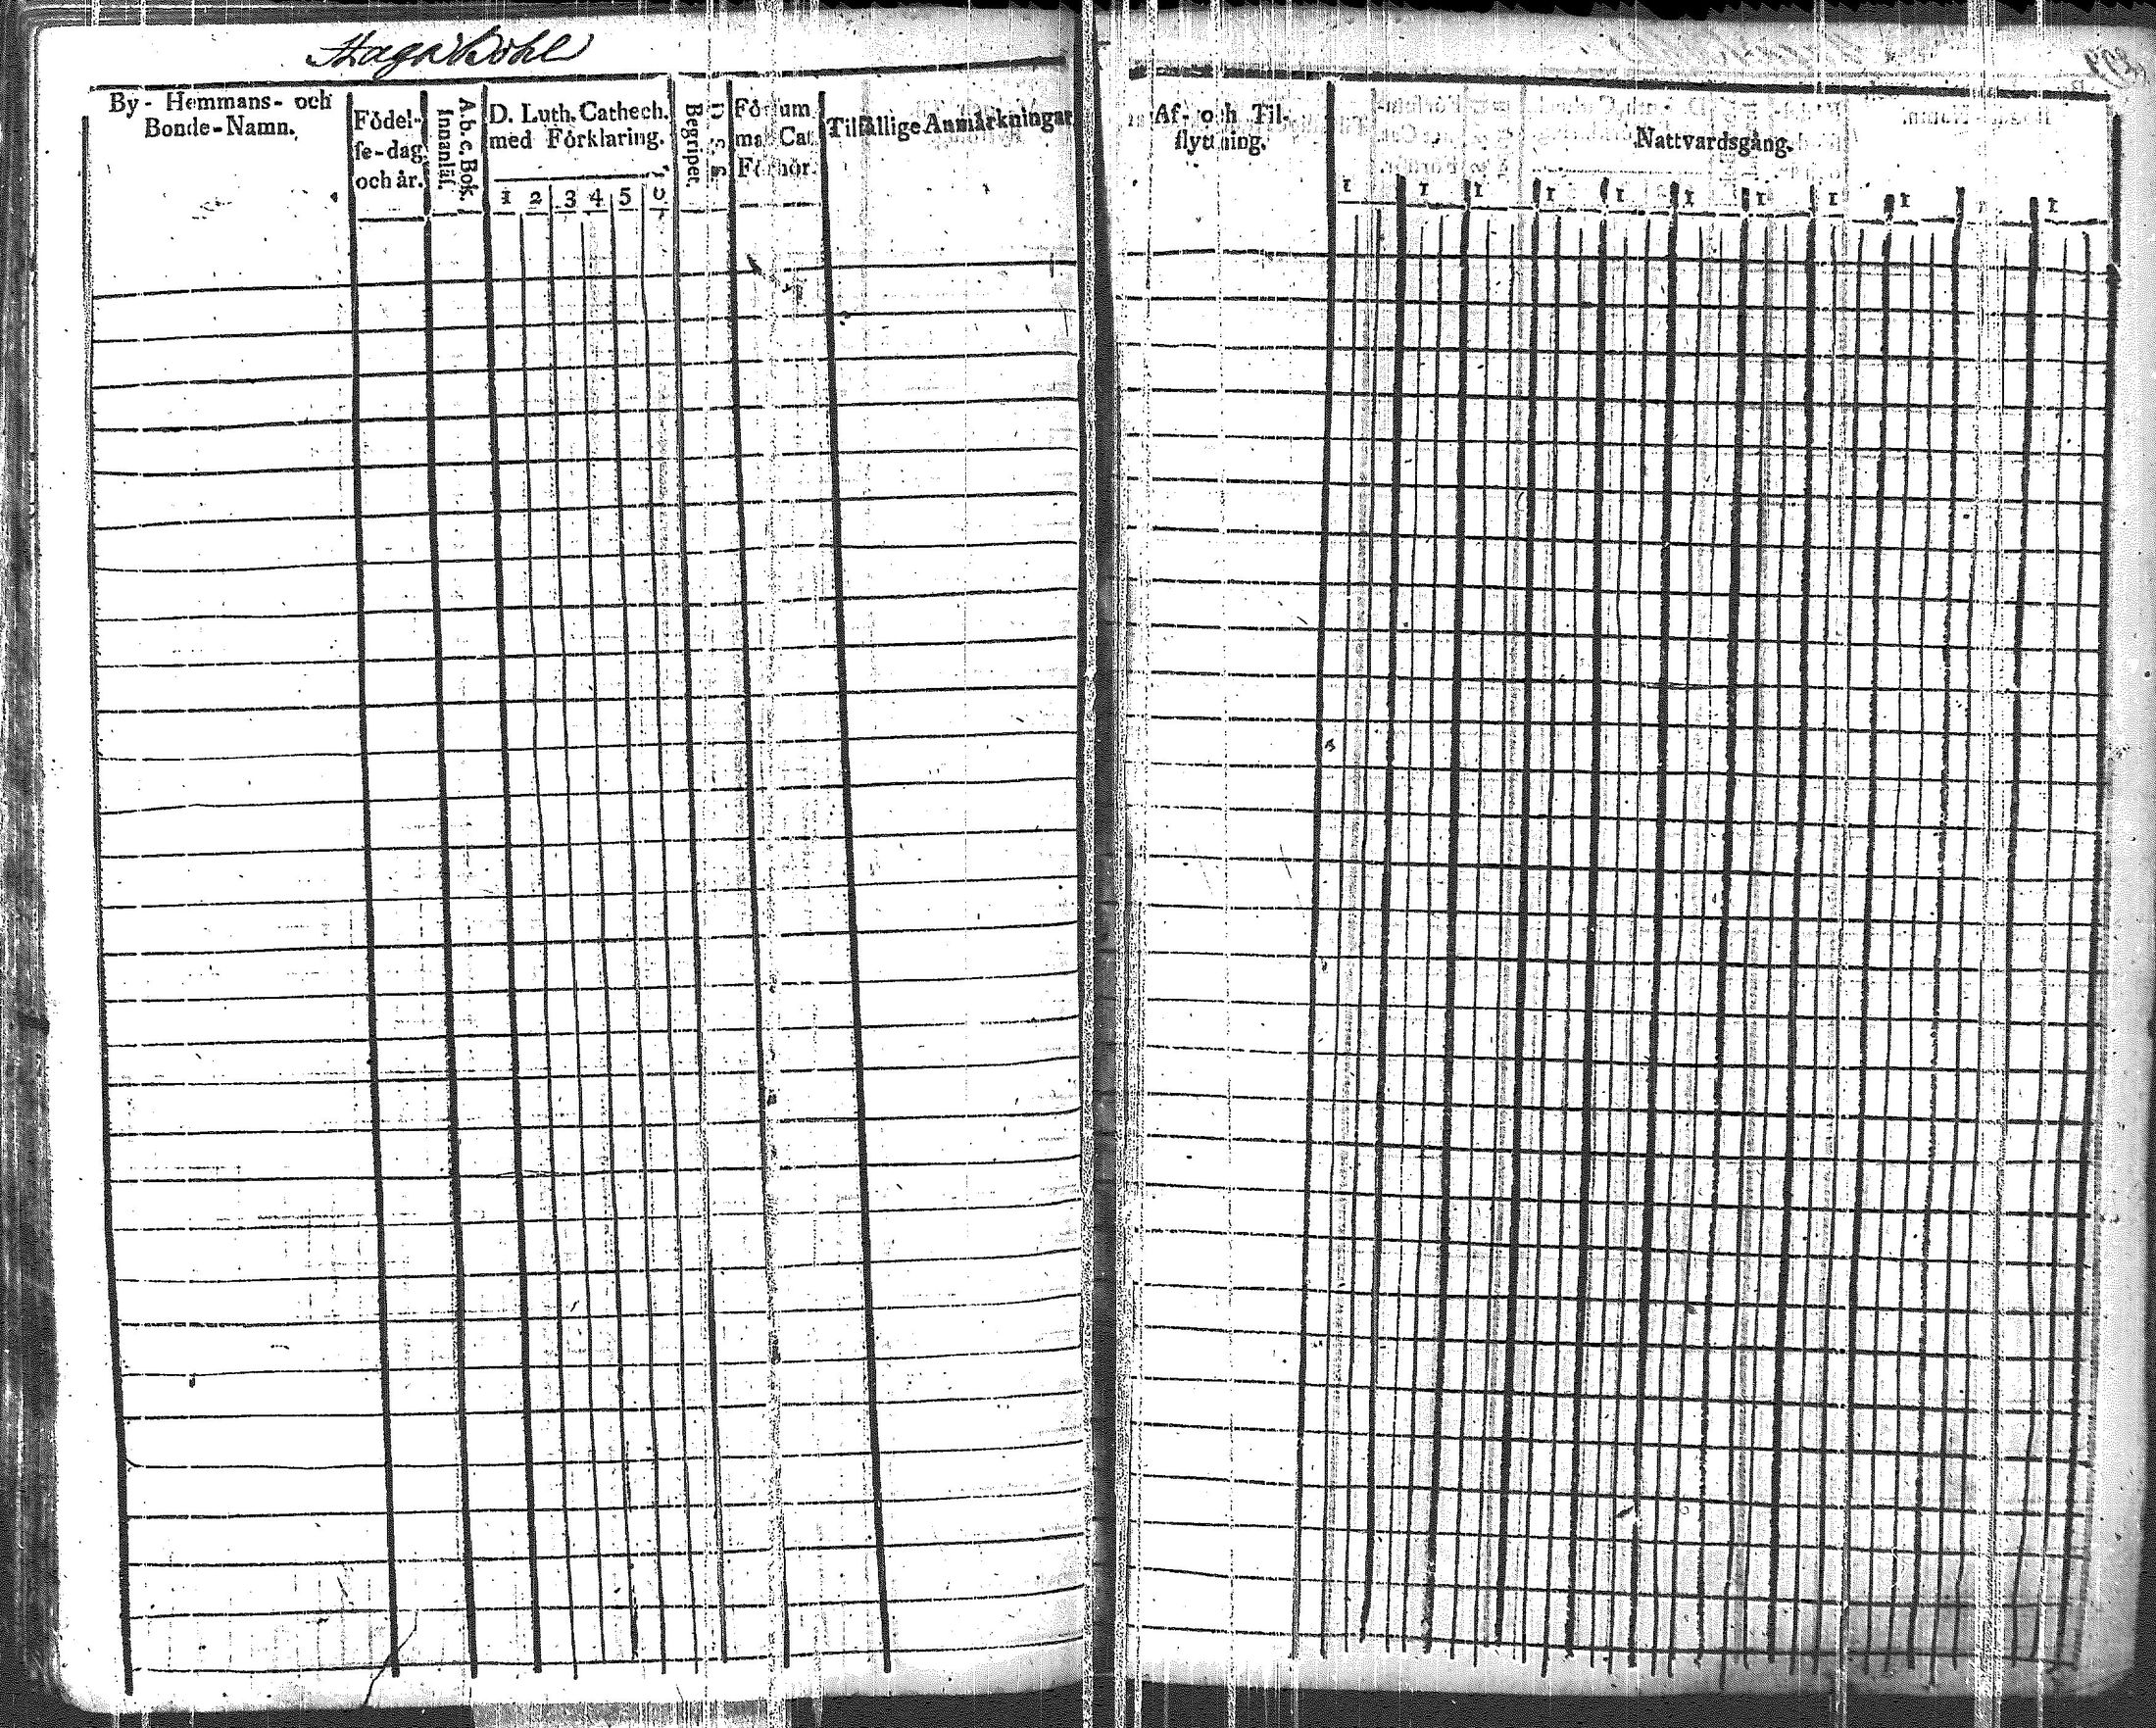 Haga Böhle
By- Hemmans- och
Bonde-Namn.
Födel-
se-dag
och år.
A.b.c. Bok.
Innanläs.
D. Luth. Cathech.
med Förklaring.
1 2 3 4 5
Begripet.
Försum
Cat
Förhör.
Tilfällige Anmärkningar
Af- och Til-
flyttning.
Nattvardsgång.
1 1 1 1 1 1 1 1 1 1